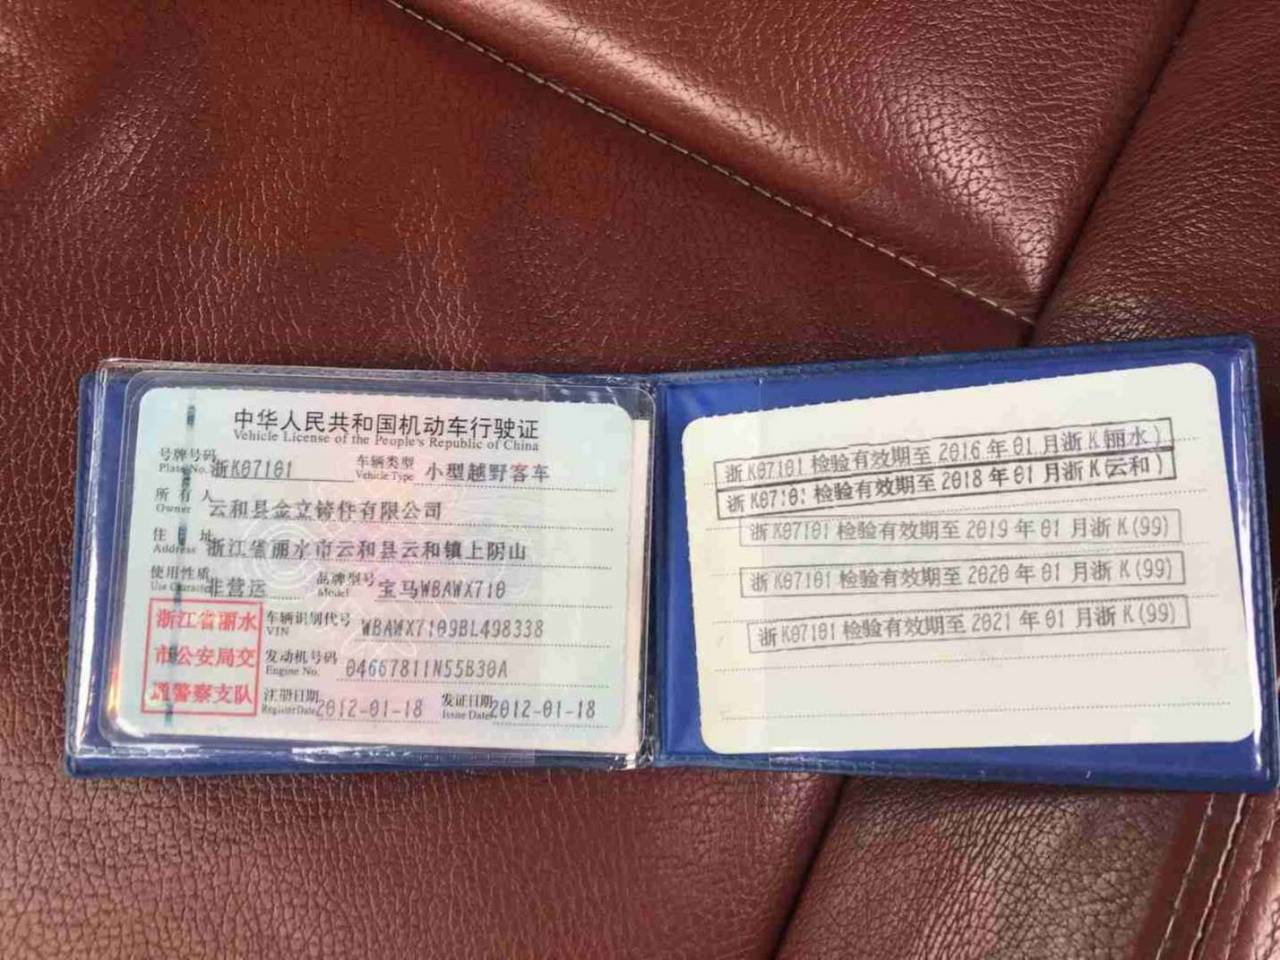 中华人民共和国机动车行驶证
Vehicle License of the People's Republic of China
号牌号码 Plate No. 浙K07101 车辆类型 Vehicle Type 小型越野客车
所有人 Owner 云和县金立铸件有限公司
住址 Address 浙江省丽水市云和县云和镇上阴山
使用性质 Use Character 非营运 品牌型号 Model 宝马WBAWX710
浙江省丽水
市公安局交
通警察支队
车辆识别代号 VIN WBAWX7109BL498338
发动机号码 Engine No. 04667811N55B30A
注册日期 Register Date 2012-01-18 发证日期 Issue Date 2012-01-18
浙K07101 检验有效期至 2016 年 01 月浙 K(丽水)
浙K07101 检验有效期至 2018 年 01 月浙 K(云和)
浙K07101 检验有效期至 2019 年 01 月浙 K(99)
浙K07101 检验有效期至 2020 年 01 月浙 K(99)
浙K07101 检验有效期至 2021 年 01 月浙 K(99)